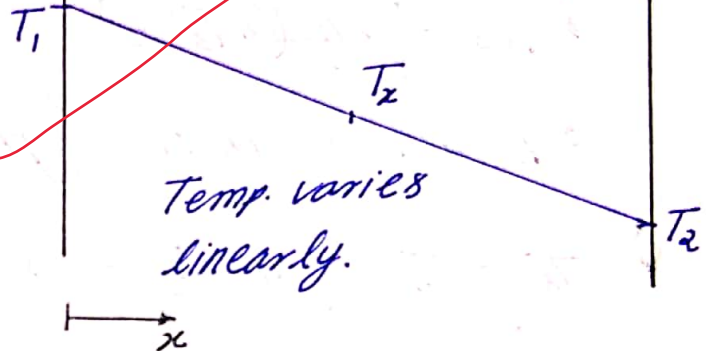 T₁
Tₓ
Temp. varies
linearly.
T₂
x